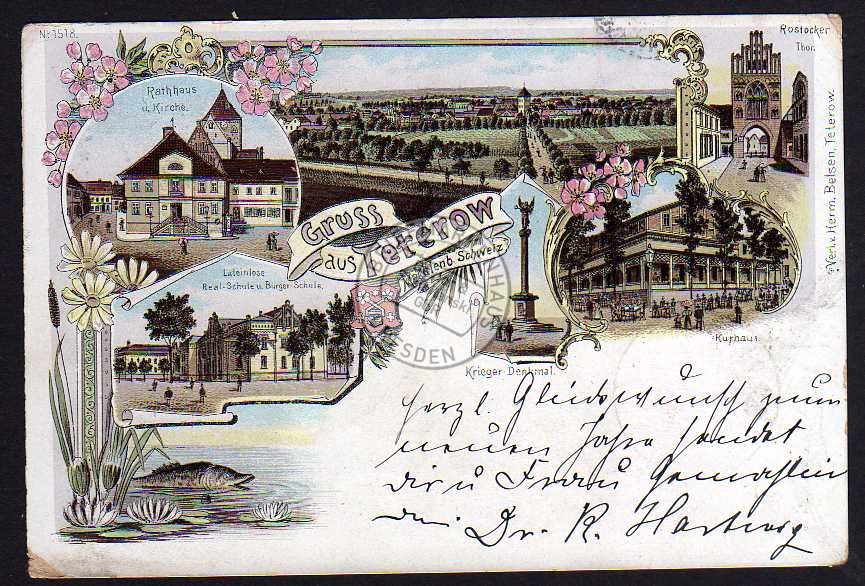 No 1518.
Rathhaus
u. Kirche.
Rostocker
Thor.
Verl. v. Herm. Belsen, Teterow.
Gruss
aus Teterow
Schweiz
Lateinlose
Real-Schule u. Bürger-Schule.
Krieger-Denkmal.
Kurhaus.
DRESDEN
herzl. Glückswunsch zum
neuen Jahre sendet
dir u Frau Gemahlin
Dr. R. Hartwig